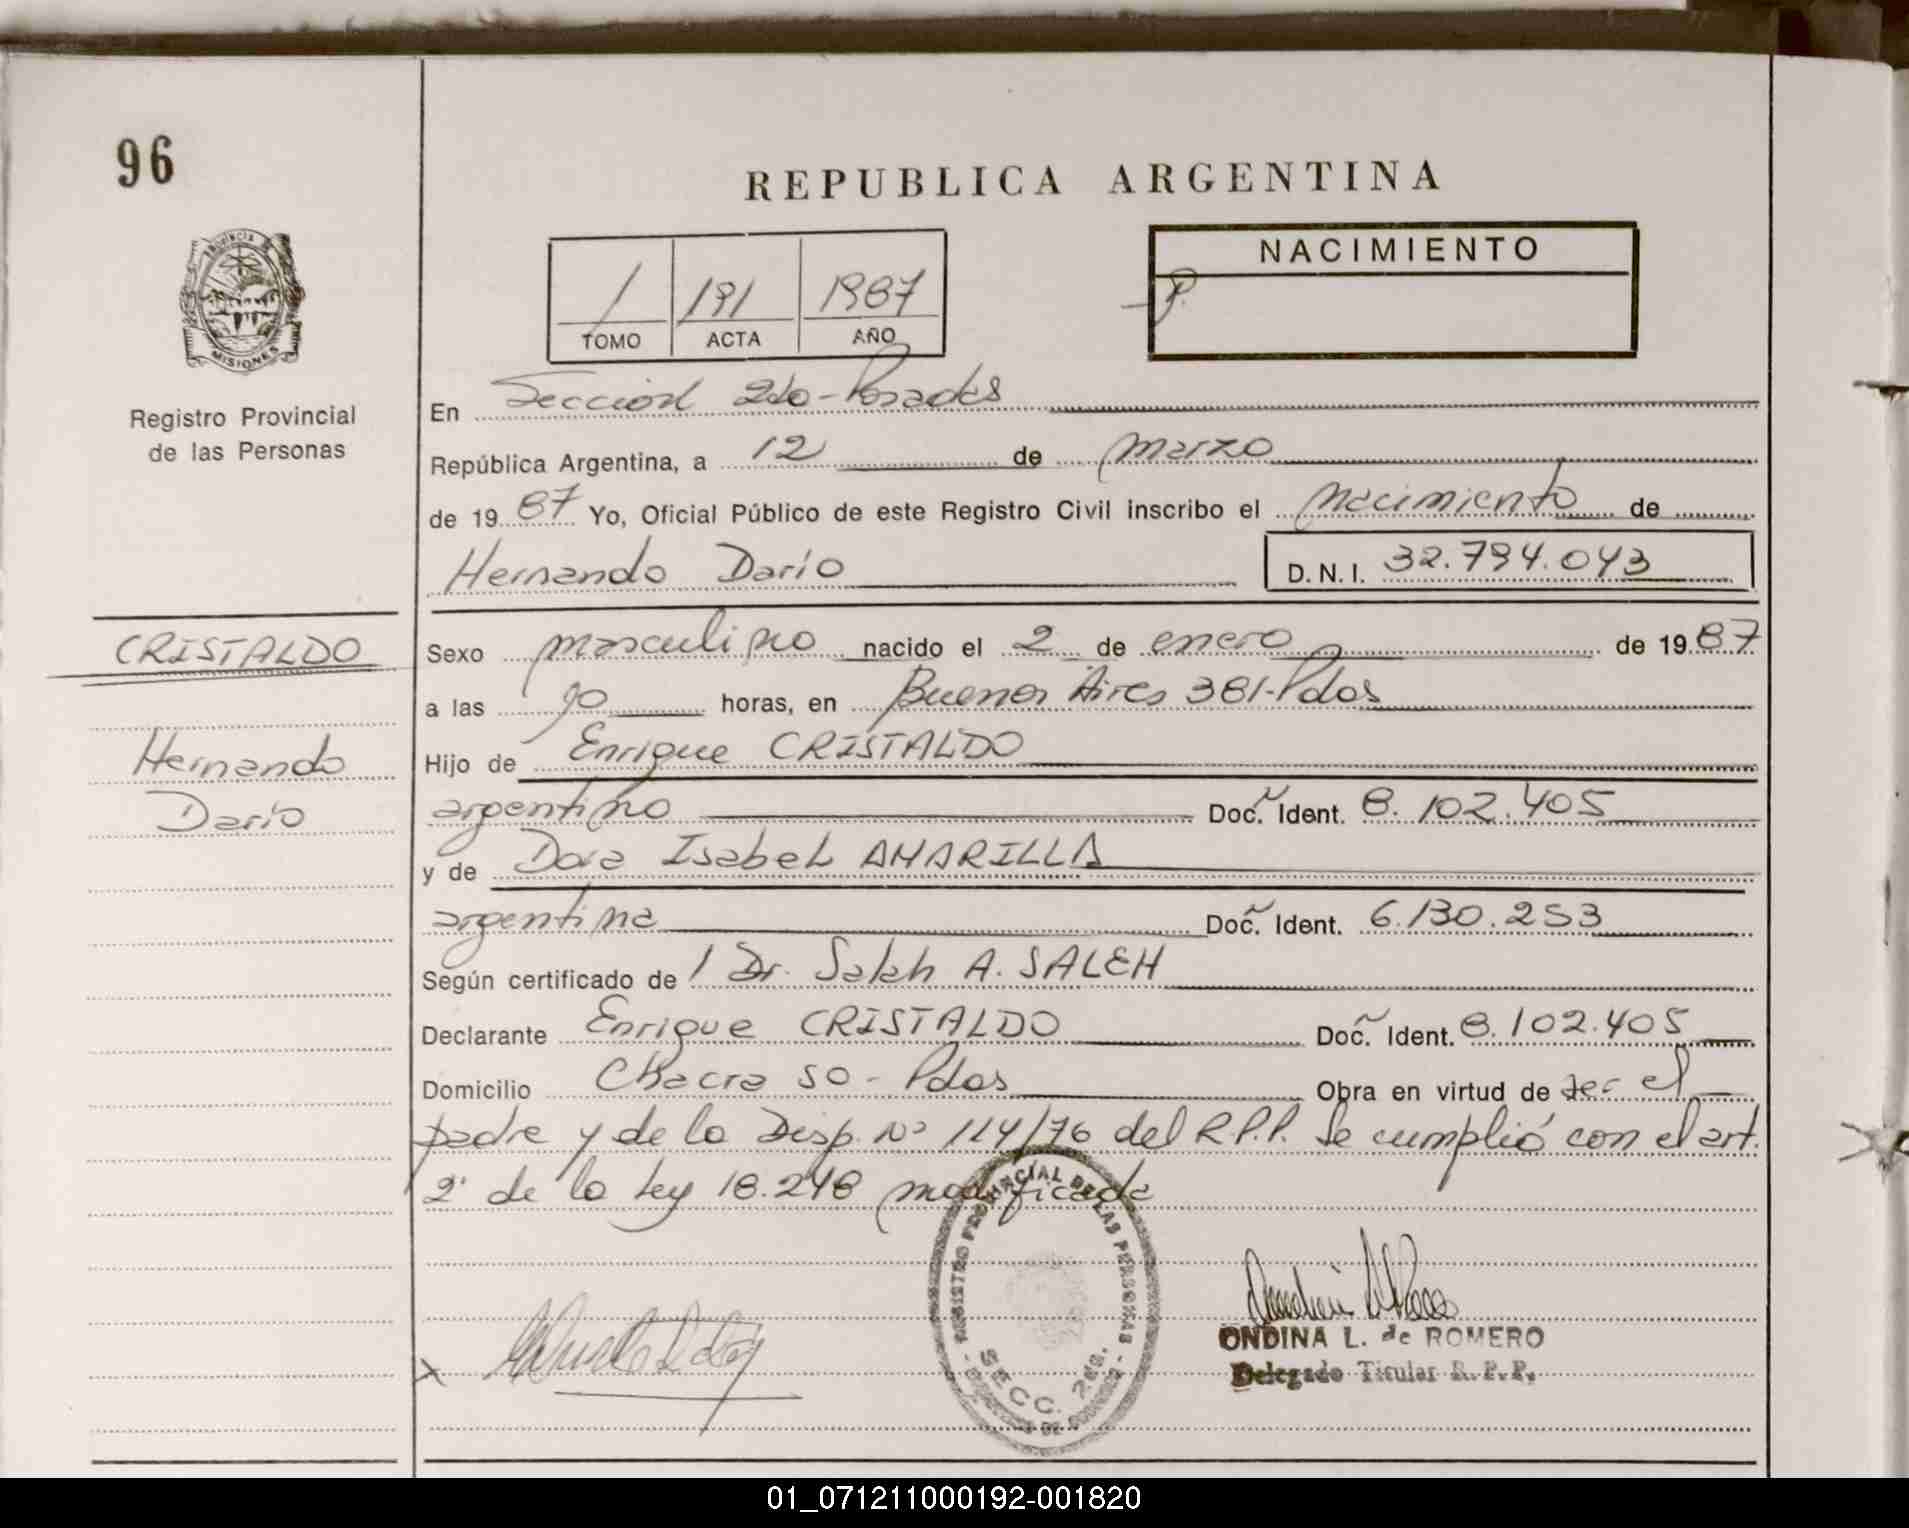 96
REPUBLICA ARGENTINA
NACIMIENTO
1 191 1987
TOMO ACTA AÑO
PROVINCIA DE
MISIONES
Registro Provincial
de las Personas
En Sección 2da-Posadas
República Argentina, a 12 de marzo
de 1987 Yo, Oficial Público de este Registro Civil inscribo el nacimiento de
Hernando Darío D.N.I. 32.794.043
CRISTALDO
Hernando
Darío
Sexo masculino nacido el 2 de enero de 1987
a las horas, en Buenos Aires 381-Pdas
Hijo de Enrique CRISTALDO
argentino Doc. Ident. 8.102.405
y de Dora Isabel AMARILLA
argentina Doc. Ident. 6.130.253
Según certificado de 1 Dr. Saleh A. SALEH
Declarante Enrique CRISTALDO Doc. Ident. 8.102.405
Domicilio Chacra 50- Pdas Obra en virtud de ser el
padre y de la Disp. Nº 114/76 del R.P.P. Se cumplió con el art.
2º de la ley 18.248 modificada
REGISTRO PROVINCIAL DE LAS PERSONAS
SECC. 2da.
ONDINA L. de ROMERO
Delegado Titular R.P.P.
01_071211000192-001820